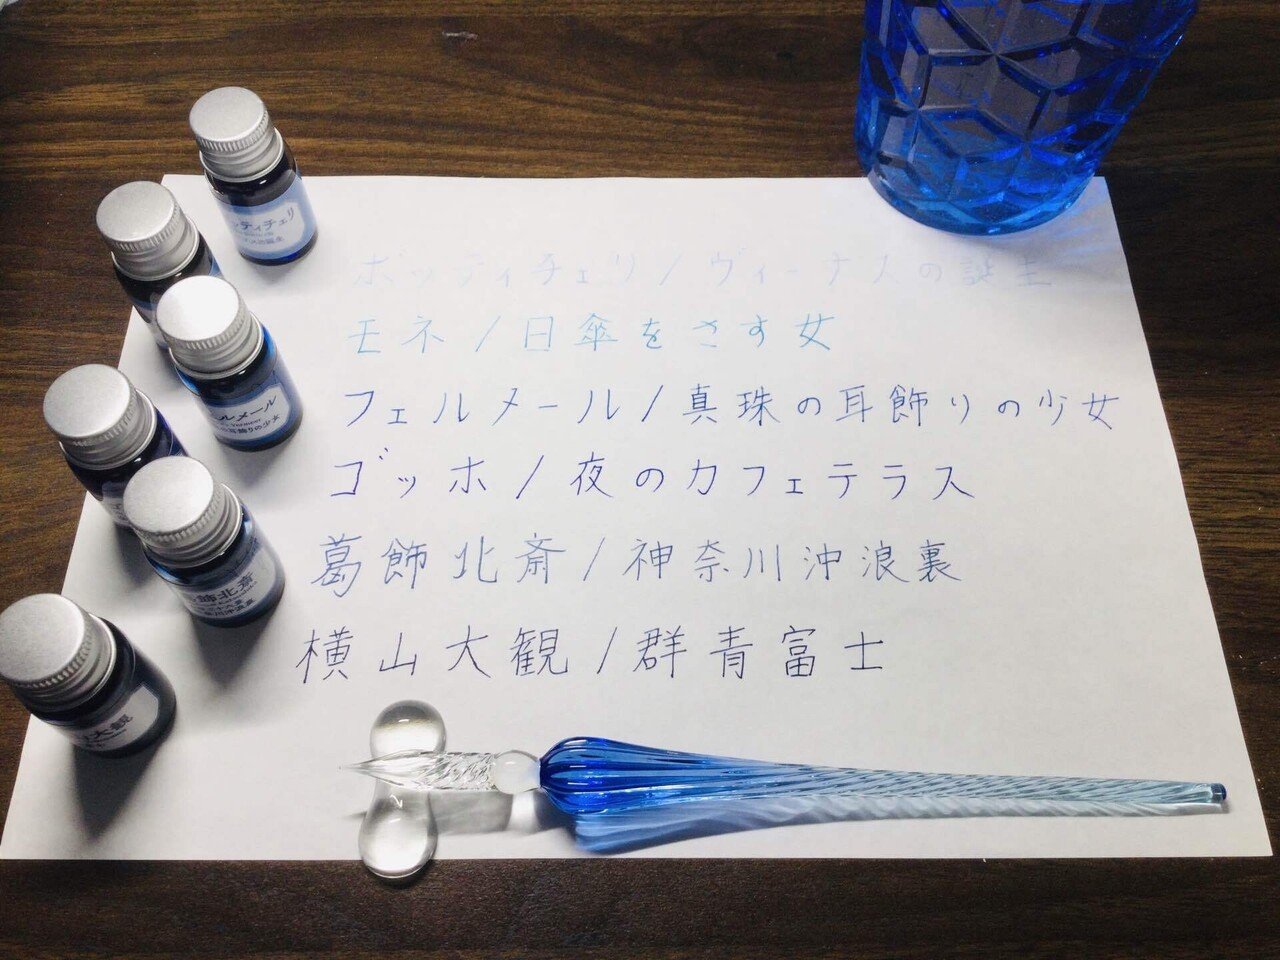 ッティチェリ
ルメール
の耳飾りの少女
飾北斎
大観
ボッティチェリ/ヴィーナスの誕生
モネ/日傘をさす女
フェルメール/真珠の耳飾りの少女
ゴッホ/夜のカフェテラス
葛飾北斎/神奈川沖浪裏
横山大観/群青富士